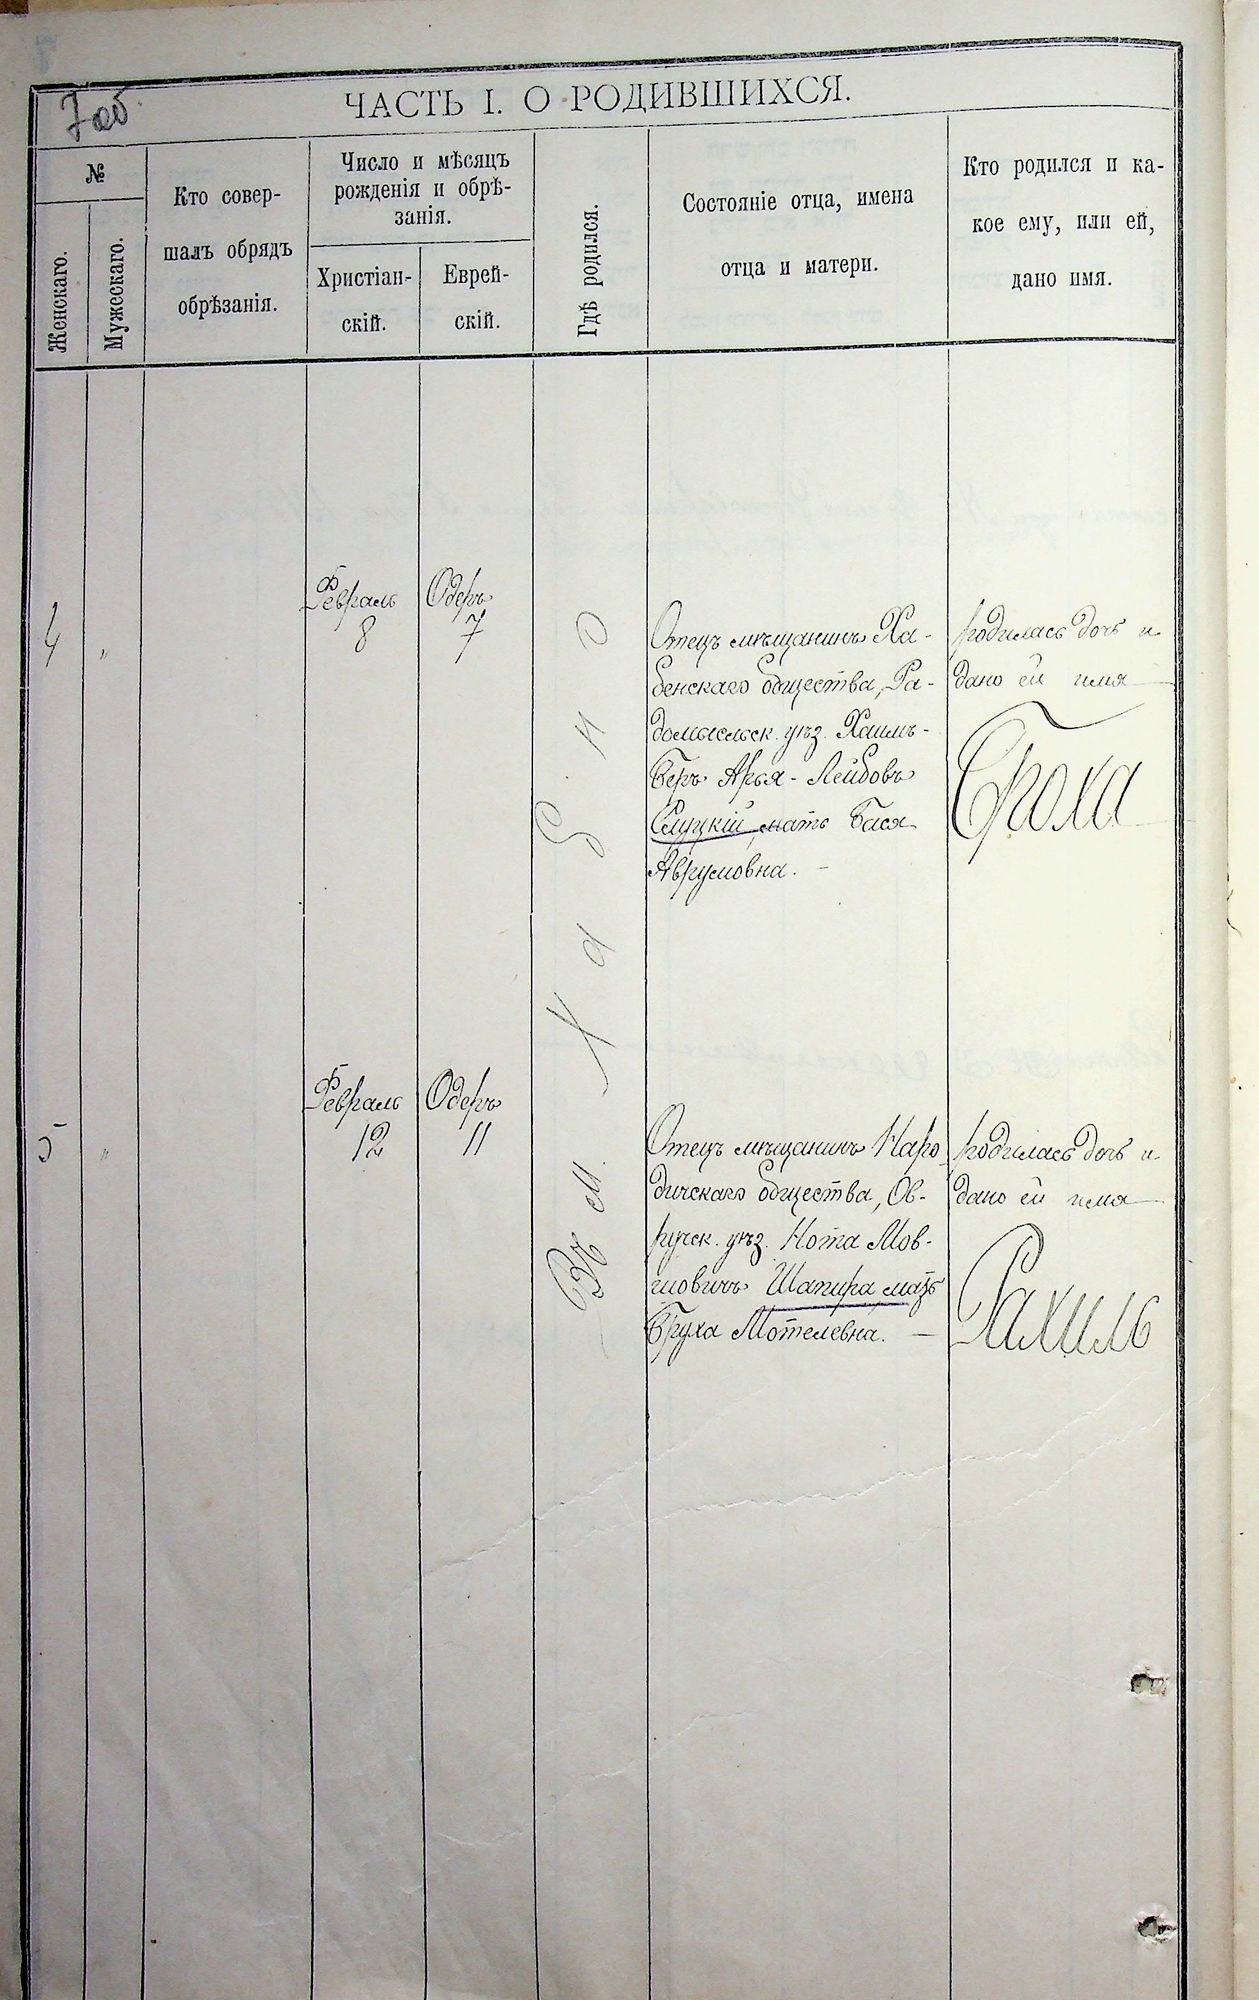 7об
ЧАСТЬ I. О РОДИВШИХСЯ.
№
Женскаго.
Мужескаго.
Кто совер-
шалъ обрядъ
обрѣзанія.
Число и мѣсяцъ
рожденія и обрѣ-
занія.
Христіан-
скій.
Еврей-
скій.
Гдѣ родился.
Состояніе отца, имена
отца и матери.
Кто родился и ка-
кое ему, или ей,
дано имя.
4
"
Февраль
8
Одеръ
7
Въ м. Хабно
Отецъ мѣщанинъ Ха-
бенскаго общества, Ра-
домысльск. уѣз. Хаимъ-
Беръ Арья-Лейбовъ
Слуцкій, мать Бася
Аврумовна. —
родилась дочь и
дано ей имя
Броха
5
"
Февраль
12
Одеръ
11
Отецъ мѣщанинъ Наро-
дичскаго общества, Ов-
ручск. уѣз. Нота Мов-
шовичъ Шапира мать
Бруха Мотелевна. —
родилась дочь и
дано ей имя
Рахиль